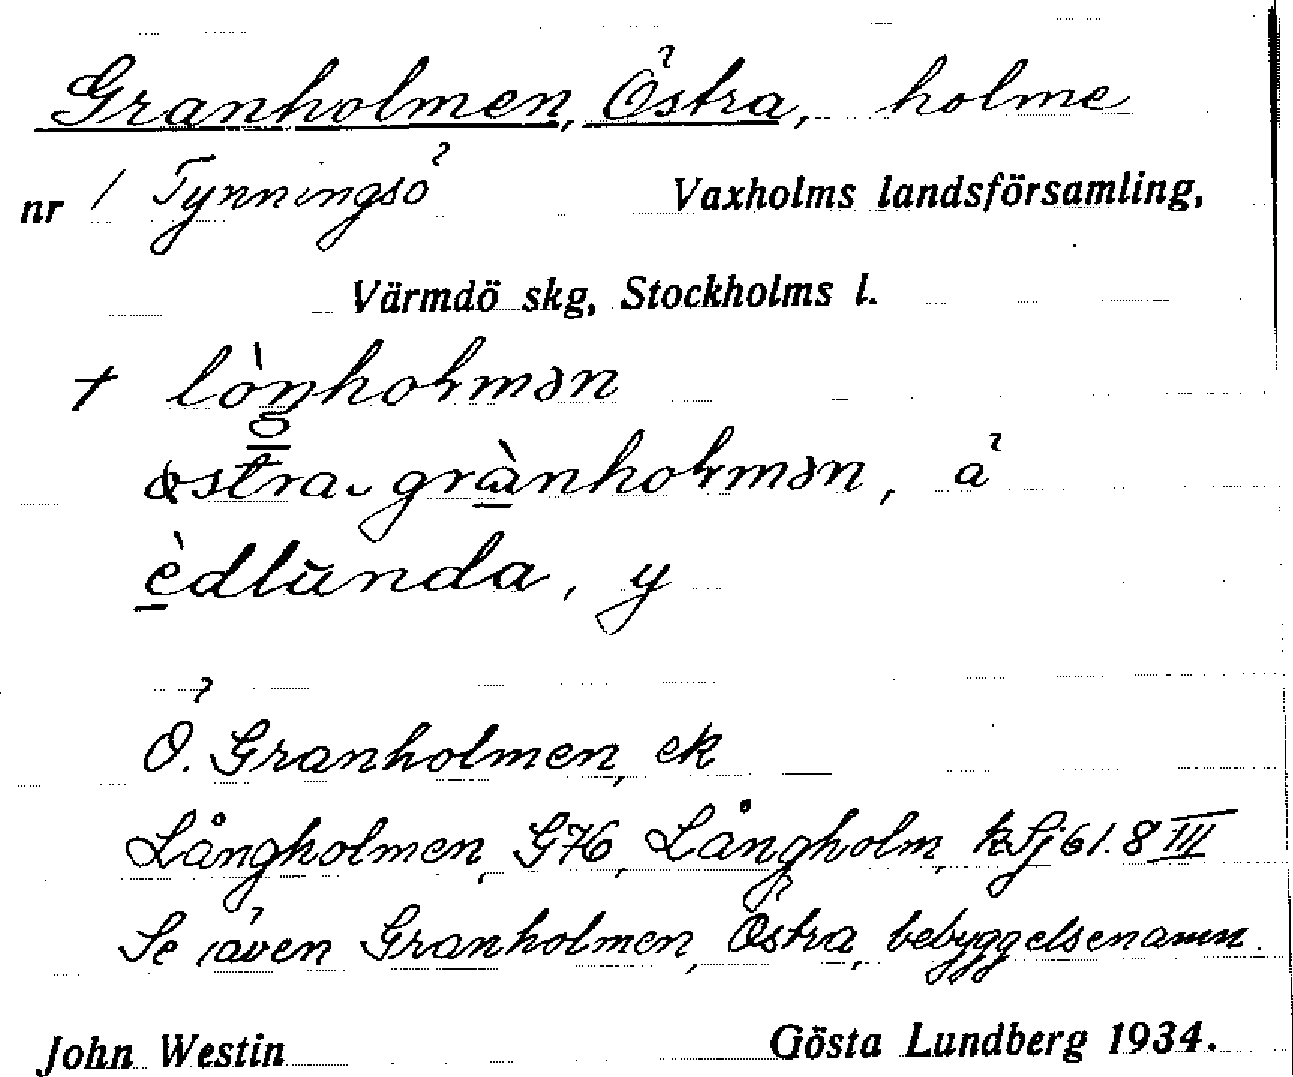 Granholmen, Östra, holme
nr 1 Tynningsö Vaxholms landsförsamling,
Värmdö skg, Stockholms l.
+ lòŋhoɫmən
østra grànhoɫmən, ä
èdlunda, y
Ö. Granholmen, ek
Långholmen, G76, Långholm, kSj 61. 8 III
Se även Granholmen, Östra, bebyggelsenamn.
John Westin Gösta Lundberg 1934.